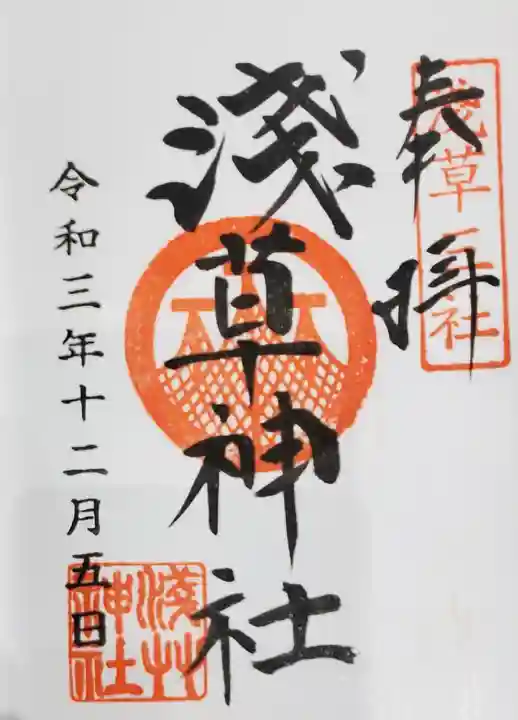 奉拝
浅草三社
淺草神社
令和三年十二月五日
淺艸神社